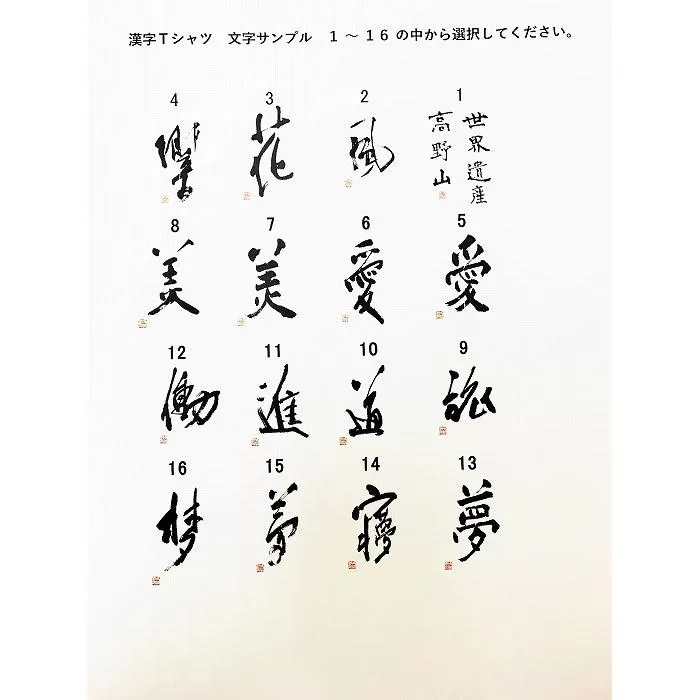 漢字Tシャツ　文字サンプル　1～16の中から選択してください。
1
世界遺産
高野山
2
風
3
花
4
響
5
愛
6
愛
7
美
8
美
9
10
道
11
進
12
働
13
夢
14
15
夢
16
梦